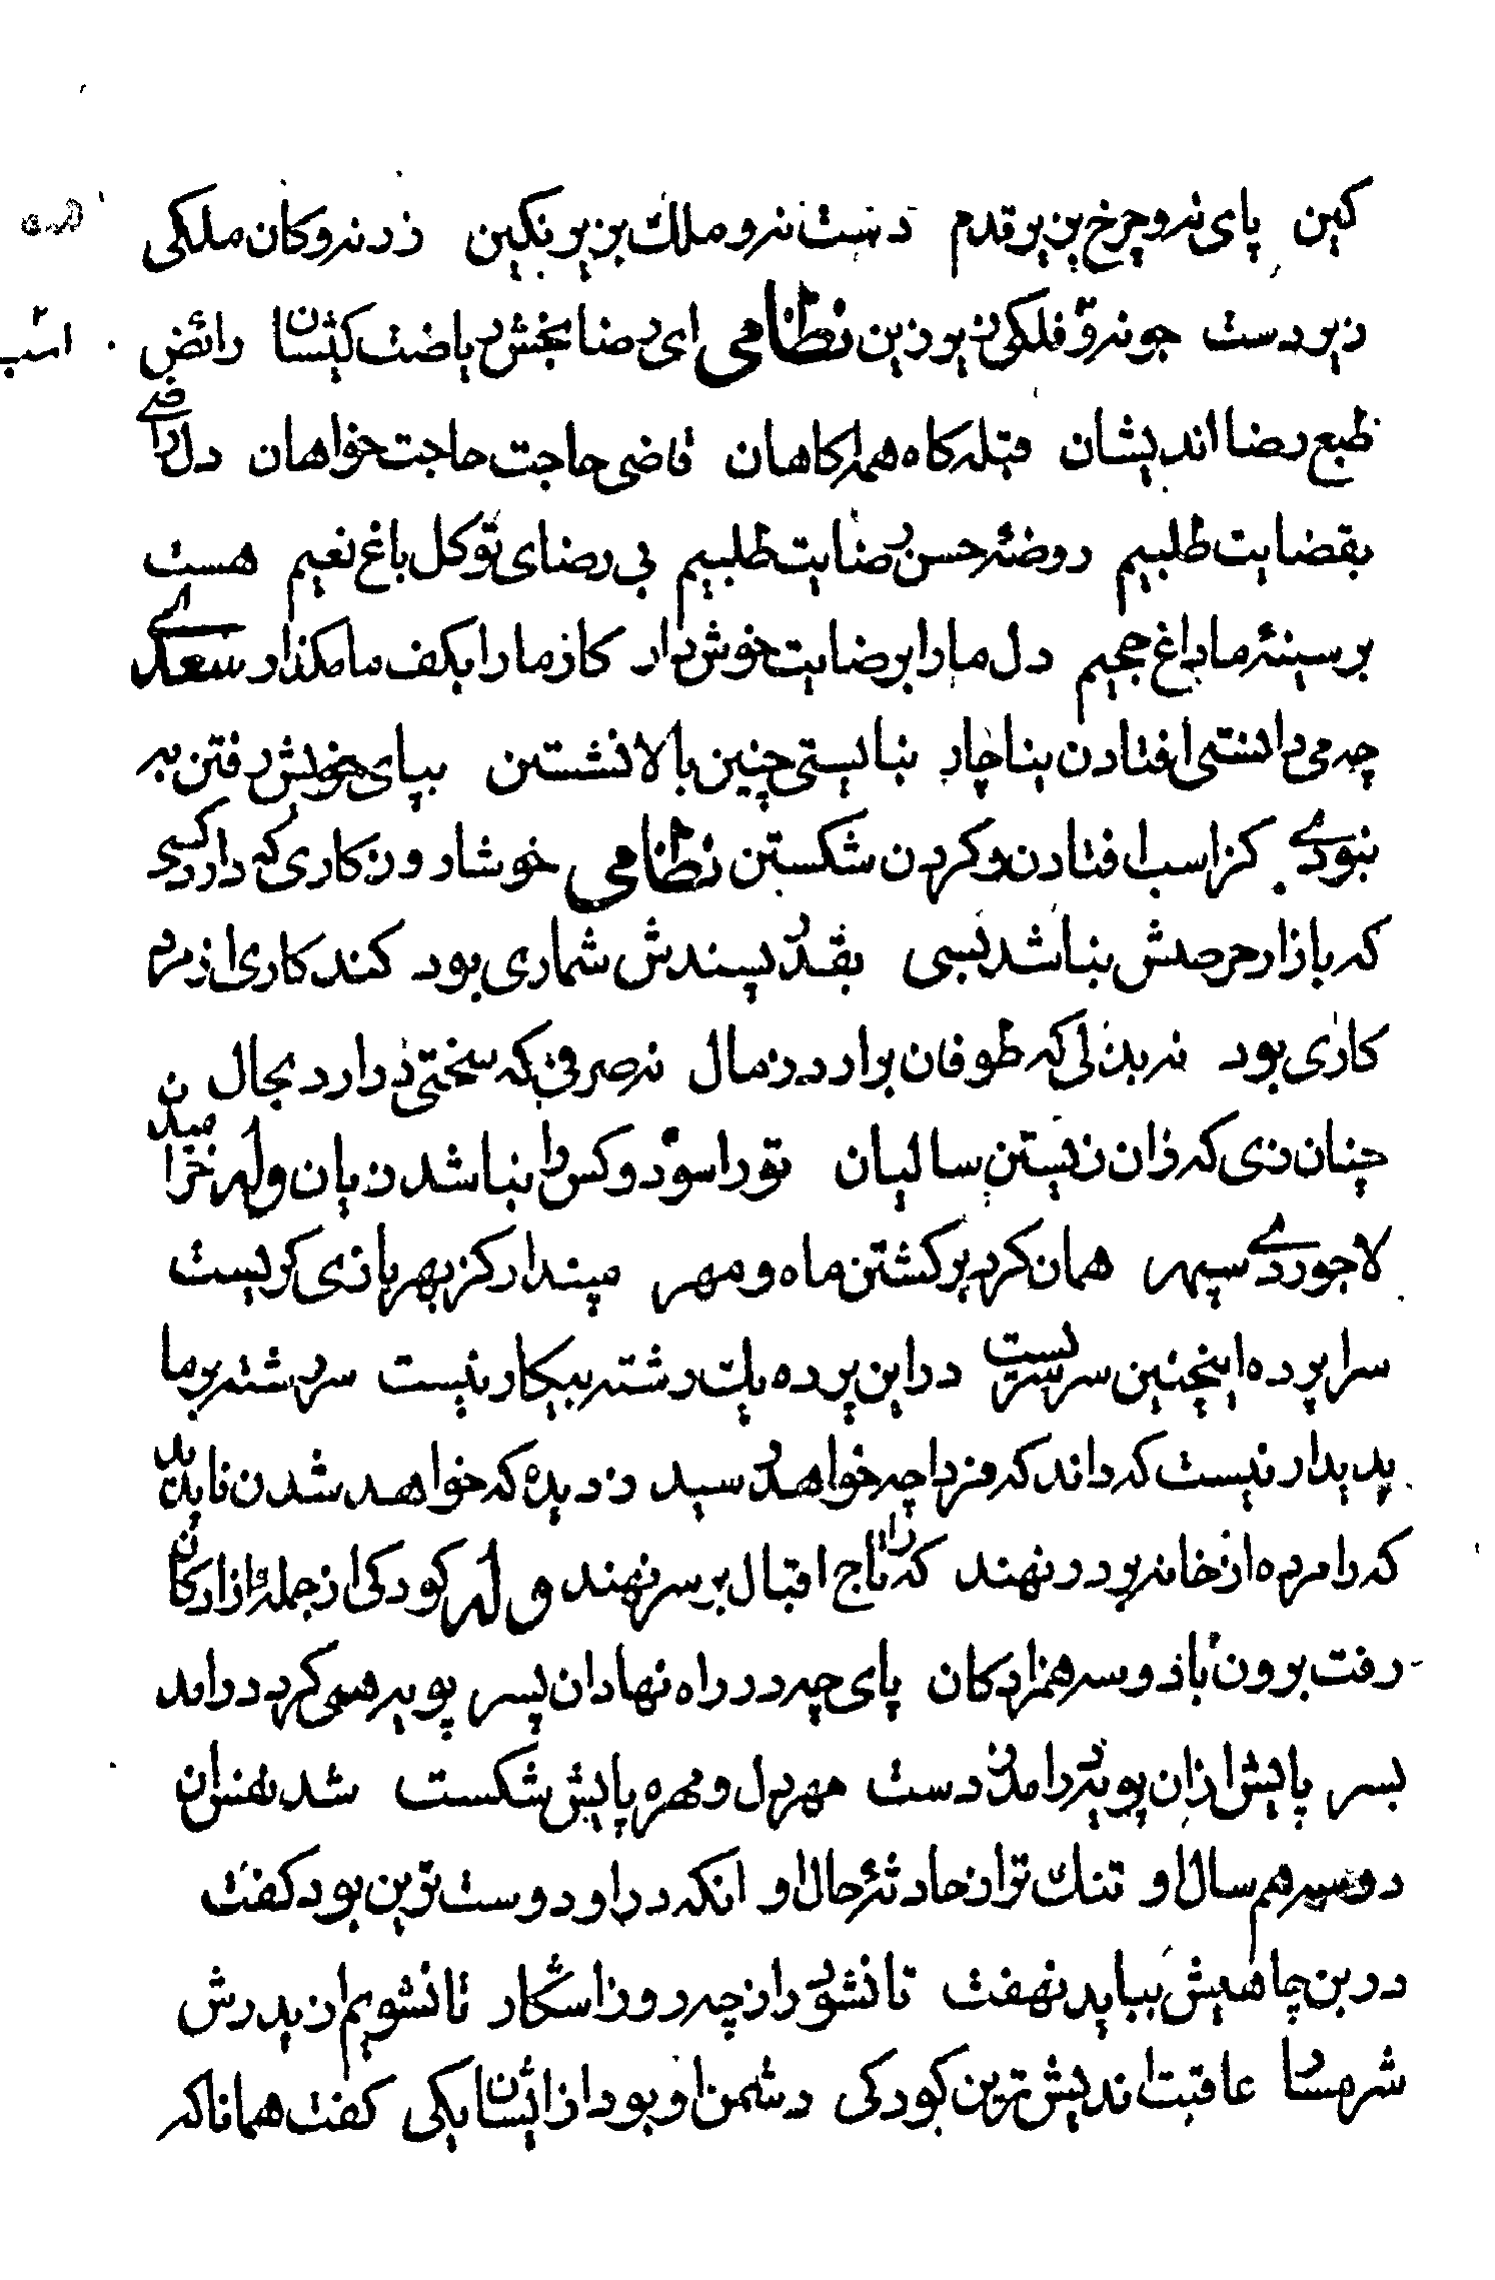 کین پای نه و چرخ بزیر قدم دست نه و ملک بزیر نکین زر نه و کان ملکی
زیر دست جو نه و فلکی زیر زین نظامی ای رضا بخش ریاضت کیشان رائض
طبع رضا اندیشان قبله کاه همه اکاهان قاضی حاجت حاجت خواهان دل راضی
بقضایت طلبیم روضهٔ حسن رضایت طلبیم بی رضای تو کل باغ نعیم هست
بر سینهٔ ما داغ جحیم دل ما را برضایت خوش دار کاز ما را بکف ما مکذار سعدی
چه می دانستی افتادن بناچار نبایستی چنین بالا نشستن بپای خویش رفتن به
نبودی کز اسب افتادن و کردن شکستن نظامی خوشا روزکاری که دارد کسی
که بازار حرصش نباشد بسی بقدر پسندش شماری بود کند کاری از مرد
کاری بود نه بذلی که طوفان برارد ز مال نه صرفی که سختی درارد بحال
چنان زی که زان زیستن سالیان تو را سود و کس را نباشد زیان وله خرامیدن
لاجوردی سپهر همان کرد بر کشتن ماه و مهر مپندار کز بهر بازی کریست
سرا پرده اینچنین سرسریست در این پرده یک رشته بیکار نیست سر رشته بر ما
پدیدار نیست که داند که فردا چه خواهد رسید ز دیده که خواهد شدن ناپدید
که را مرده از خانه بر در نهند که را تاج اقبال بر سر نهند وله کودکی از جملهٔ ازادکان
رفت برون با دو سه همزادکان پای چه در راه نهاد ان پسر پویه همی کرد درامد
بسر پایش ازان پویه درامد ز دست مهر دل و مهره پایش شکست شد نفس ان
دو سه هم سال او تنک تر از حادثهٔ حال او انکه در او دوست ترین بود کفت
در بن چاهیش بباید نهفت تا نشود راز چه روز اشکار تا نشویم از پدرش
شرمسار عاقبت اندیش ترین کودکی دشمن او بود از ایشان یکی کفت همانا که